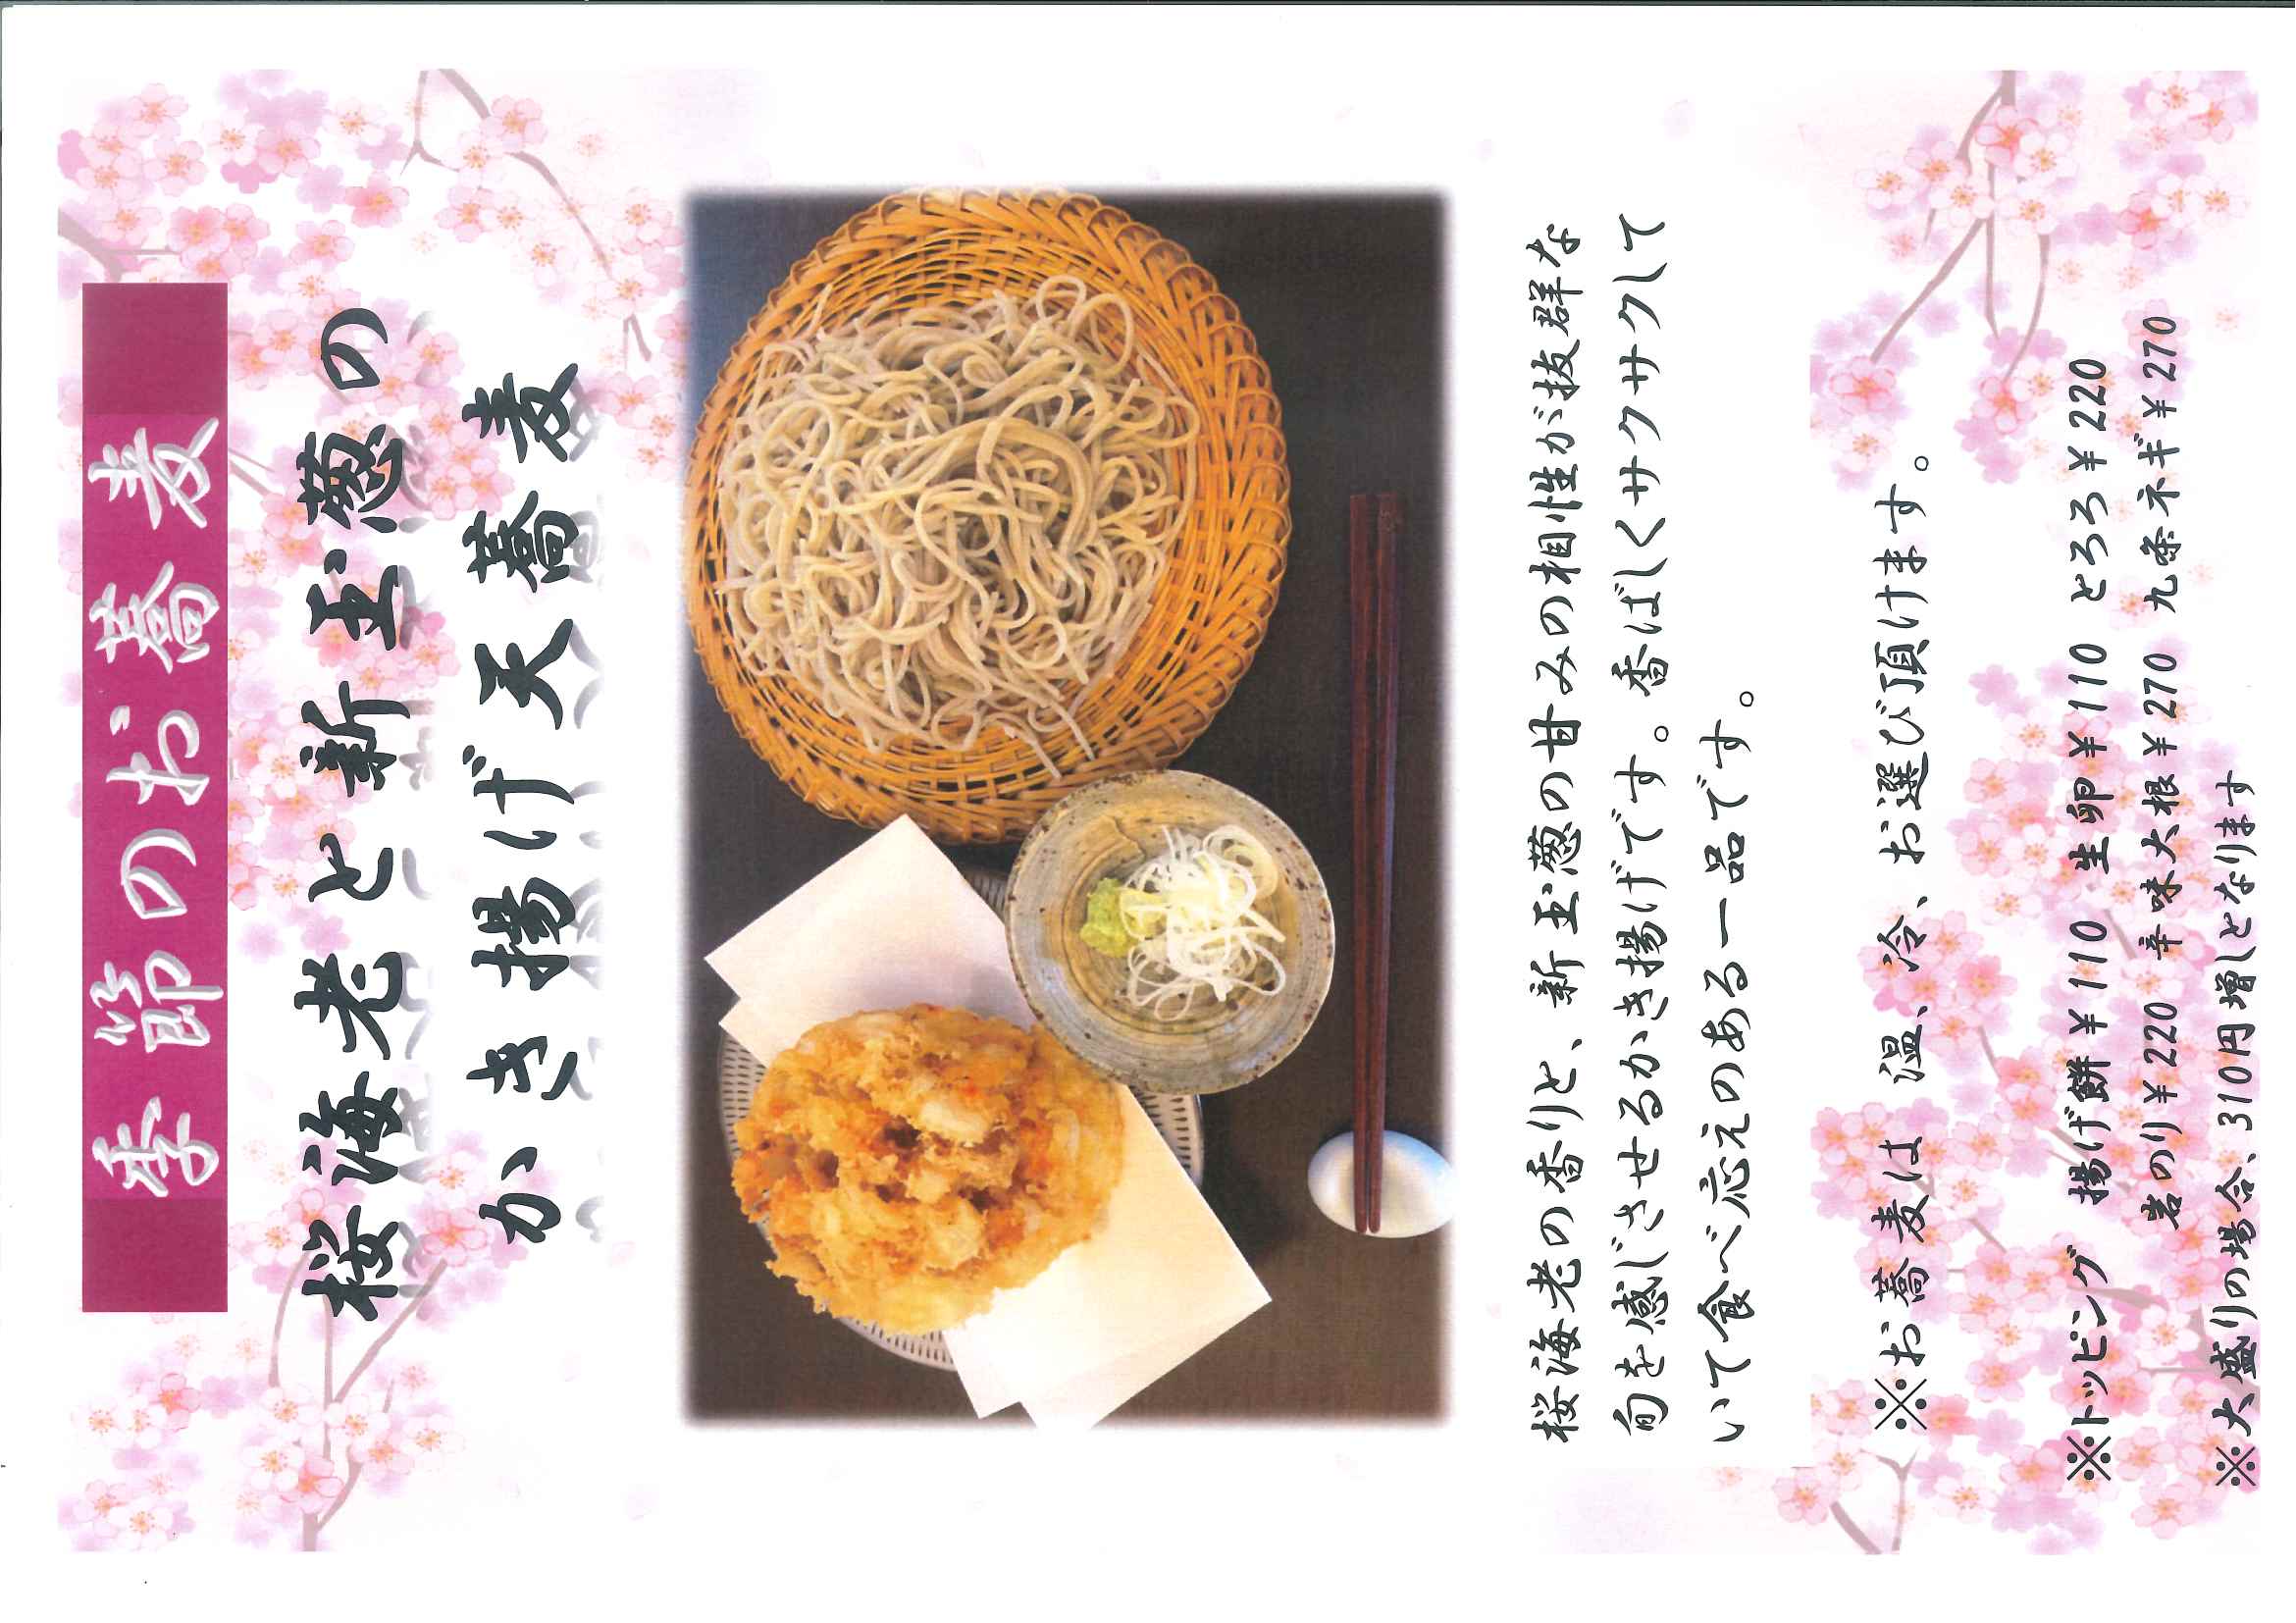 季節のお蕎麦
桜海老と新玉葱の
かき揚げ天蕎麦
桜海老の香りと、新玉葱の甘みの相性が抜群な
旬を感じさせるかき揚げです。香ばしくサクサクして
いて食べ応えのある一品です。
※お蕎麦は 温、冷、お選び頂けます。
※トッピング 揚げ餅￥110 生卵￥110 とろろ￥220
岩のり￥220 辛味大根￥270 九条ネギ￥270
※大盛りの場合、310円増しとなります